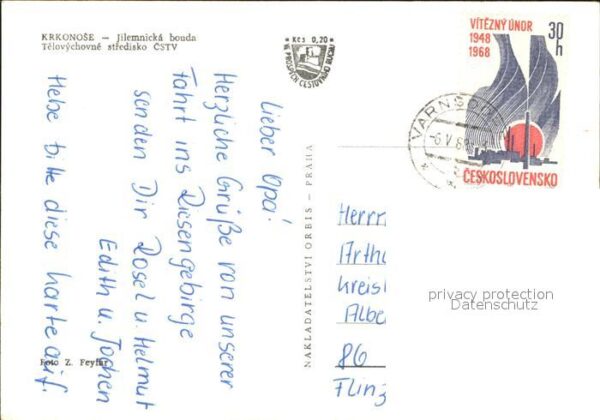 KRKONOŠE — Jilemnická bouda
Tělovýchovné středisko ČSTV
Kčs 0,20
VE PROSPĚCH CESTOVNÍHO RUCHU
VÍTĚZNÝ ÚNOR
1948
1968
30
h
ČESKOSLOVENSKO
VARNSDO
-6.V.68
Lieber Opa!
Herzliche Grüße von unserer
Fahrt ins Riesengebirge
senden Dir Rosel u. Helmut
Edith u. Jochen
Hebe bitte diese Karte auf.
NAKLADATELSTVÍ ORBIS — PRAHA
Herrn
Arthu
Kreis
Albe
86
Flinz
privacy protection
Datenschutz
Foto Z. Feyfar